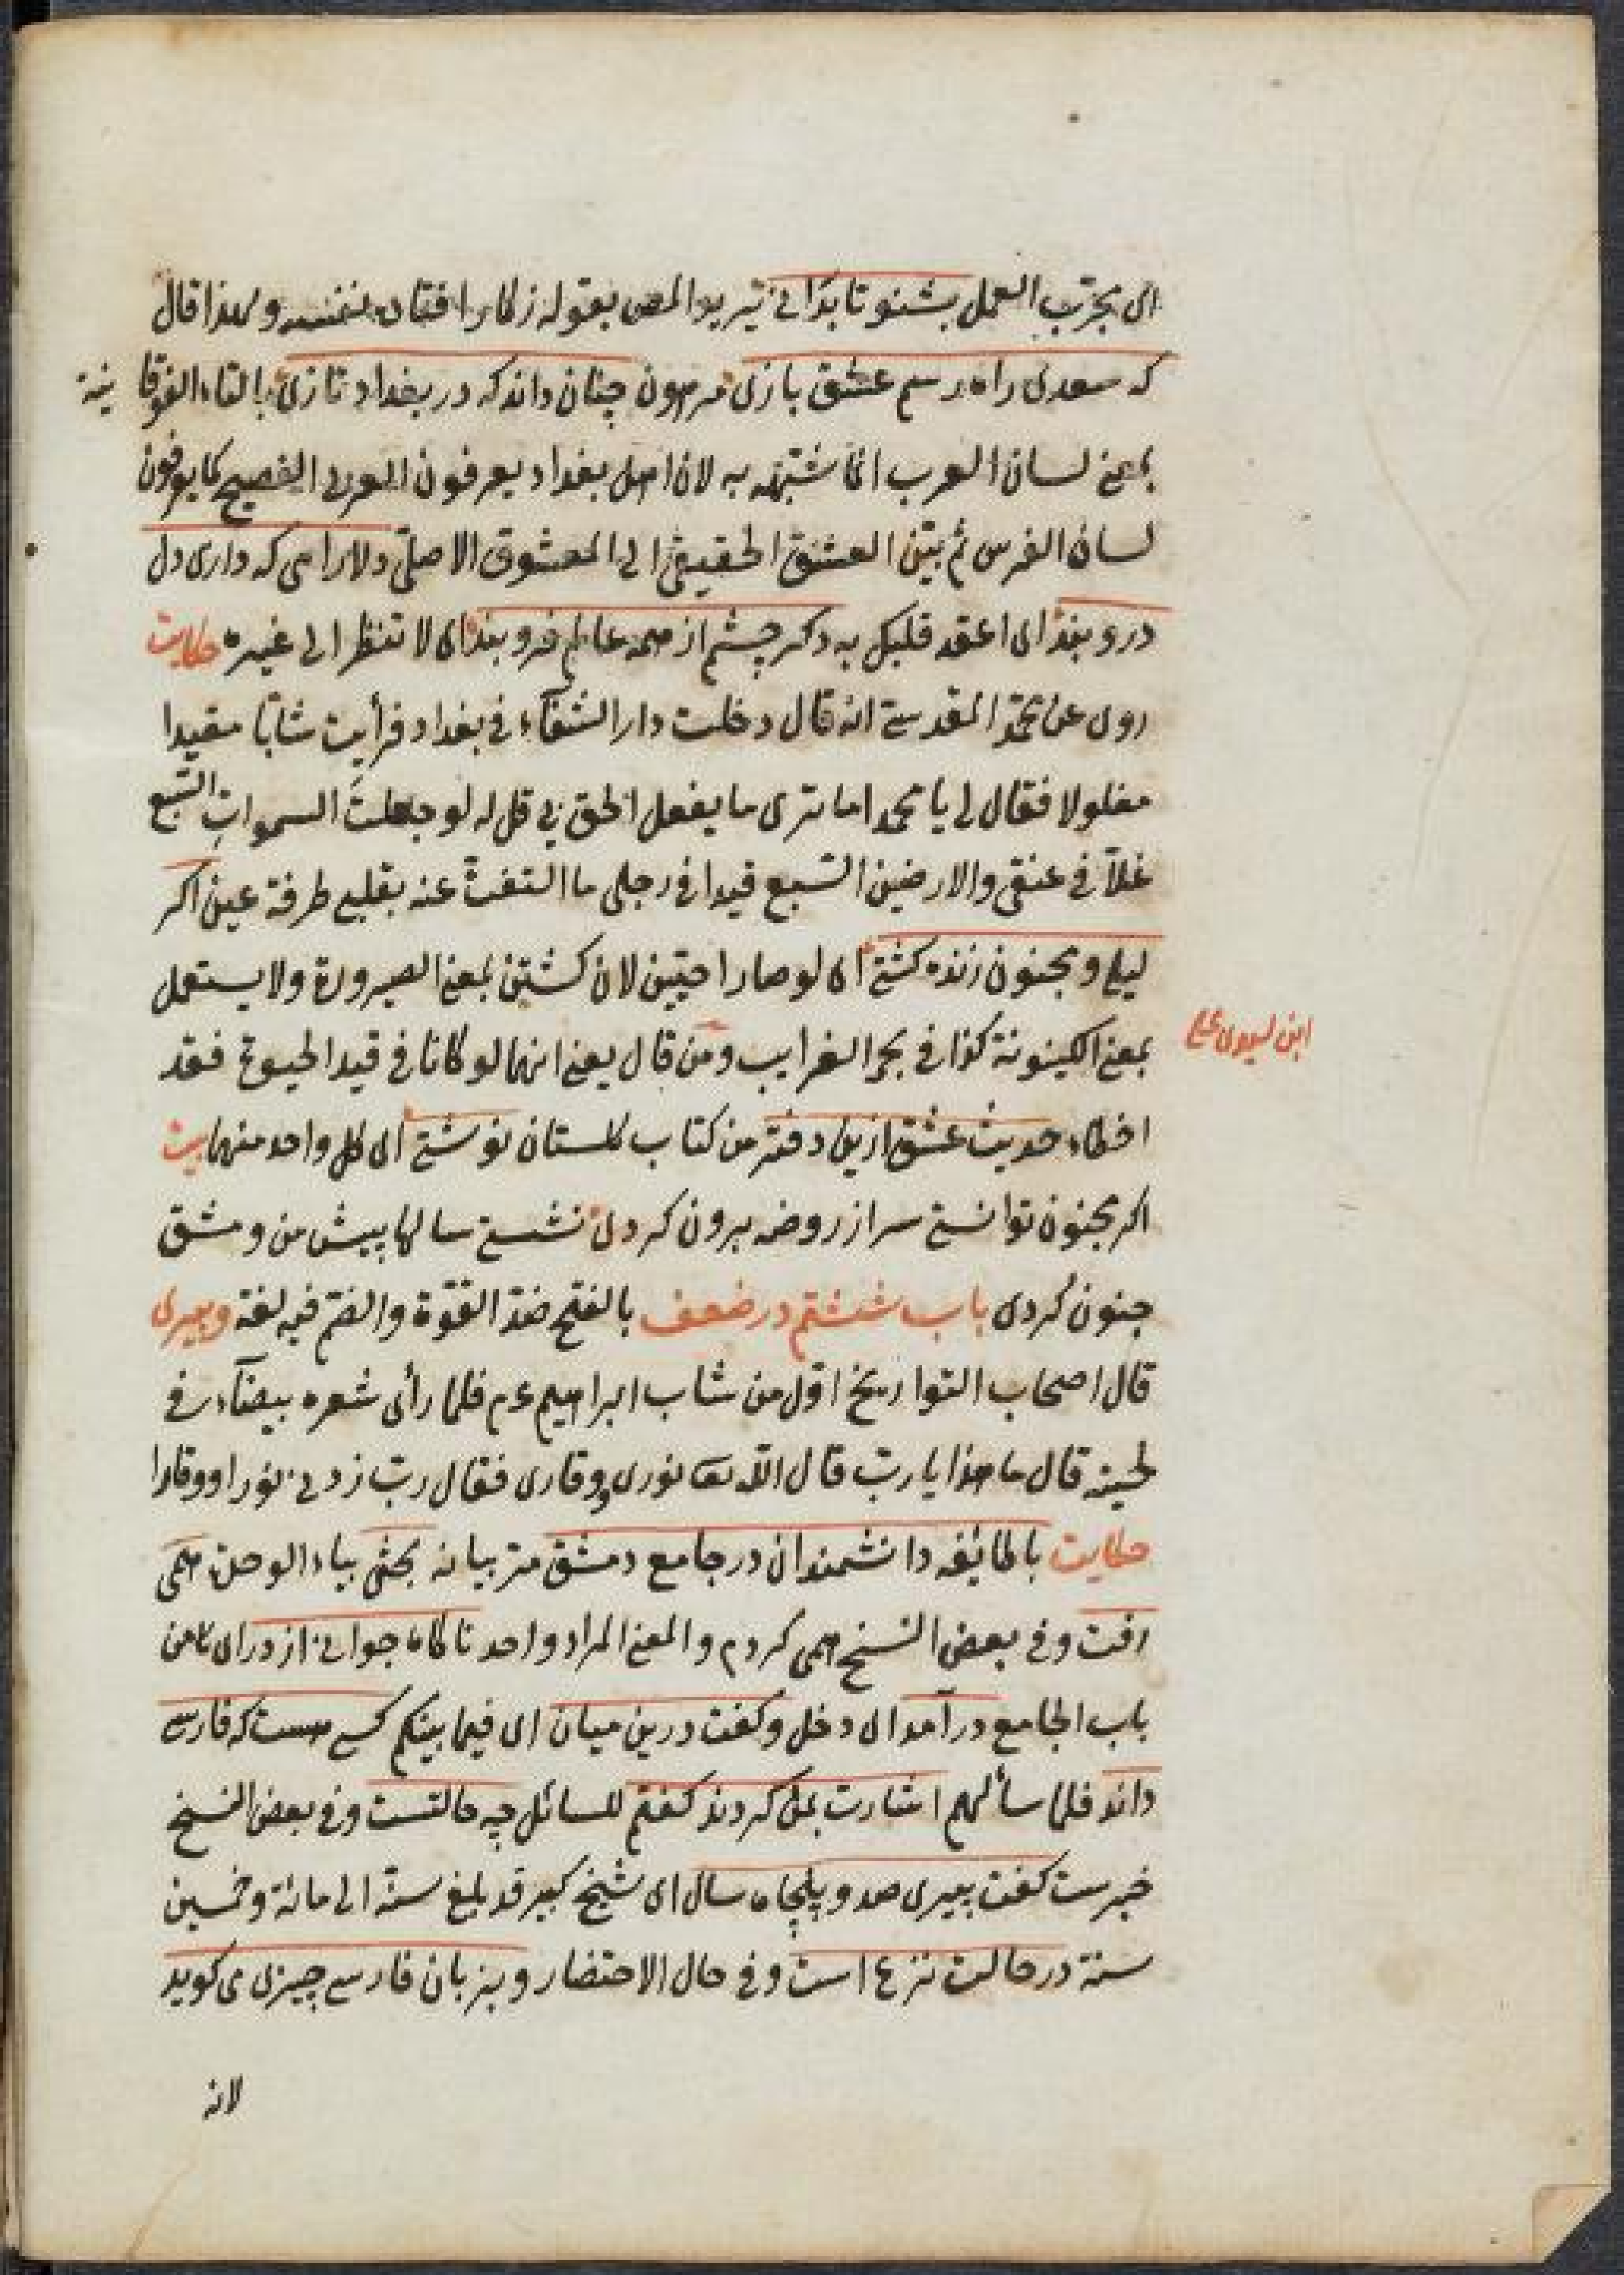 ای مجرّب العمل بشنو تا بدانی یرید المص بقوله ز کار افتاده نفسه ولهذا قال
که سعدی راه و رسم عشق بازی مرهون چنان داند که در بغداد تازی بالتاء الفوقا نیة
بمعنی لسان العرب انما شبّهه به لان اهل بغداد یعرفون العربی الفصیح کما یعرفون
لسان الفرس ثم بیّن العشق الحقیقی الی المعشوق الاصلی دلارامی که داری دل
درو بند ای اعقد قلبک به دکر چشم از همه عالم فرو بند ای لا تنظر الی غیره حکایت
روی عن محمد المقدسی انه قال دخلت دار الشفاء فی بغداد فرأیت شابّا مقیدا
مغلولا فقال لی یا محمد اما تری ما یفعل الحق بی قل له لو جعلت السموات السّبع
غلاّ فی عنقی والارضین السّبع قیدا فی رجلی ما التفتّ عنه بقلبی طرفة عین اکر
لیلی و مجنون زنده کشتی ای لو صارا حیّین لان کشتن بمعنی الصیرورة ولا یستعمل
بمعنی الکینونة کذا فی بحر الغرایب ومن قال یعنی انهما لو کانا فی قید الحیوة فقد
ابن لیدی
اخطاء حدیث عشق ازین دفتر من کتاب کلستان نوشتی ای کل واحد منهما بیت
اکر مجنون توانستی سر از روضه برون کردی نشستی سالها پیش من و مشق
جنون کردی باب ششتم در ضعف بالفتح ضدّ القوّة والضم فیه لغة وپیری
قال اصحاب التواریخ اوّل من شاب ابراهیم عم فلما رأی شعره بیضاء فی
لحیته قال ما هذا یا ربّ قال اللّه تعا نوری ووقاری فقال ربّ زدنی نورا ووقارا
حکایت با طائفه دانشمندان در جامع دمشق مر بیانه بحثی بیاء الوحدة همی
رفت وفی بعض النسخ همی کردم والمعنی المراد واحد ناکاه جوانی از در ای من
باب الجامع در آمد ای دخل وکفت درین میان ای فیما بینکم کسی هست که فارسی
داند فلما سألهم اشارت بمن کردند کفتم للسائل چه حالتست وفی بعض النسخ
خبرست کفت پیری صد و پنجاه سال ای شیخ کبیر قد بلغ سنّه الی مائة وخمسین
سنة در حالت نزع است وفی حال الاحتضار و بزبان فارسی چیزی می کوید
لانه